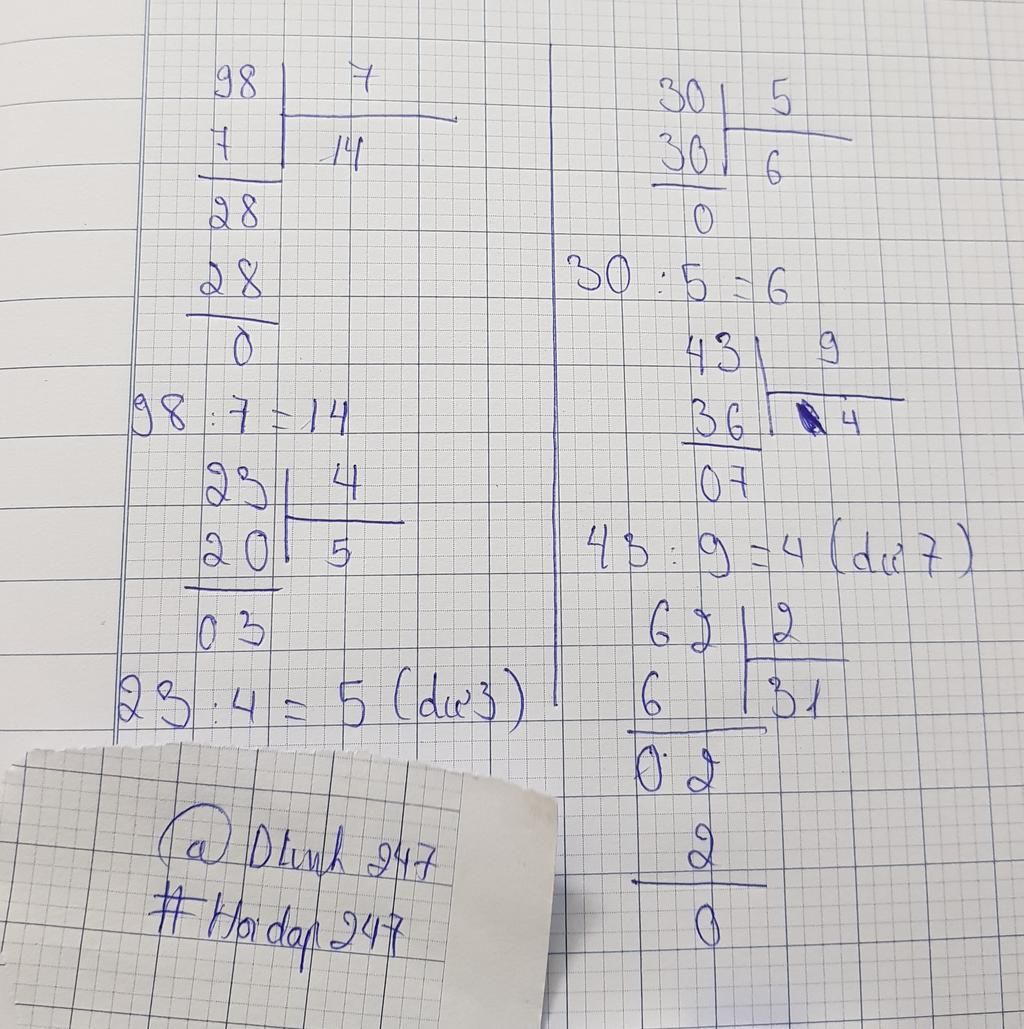 98 7
7 14
28
28
0
98 : 7 = 14
23 4
20 5
03
23 : 4 = 5 (dư 3)
@ Dlinh 247
# Hoidap 247
30 5
30 6
0
30 : 5 = 6
43 9
36 4
07
43 : 9 = 4 (dư 7)
62 2
6 31
02
2
0